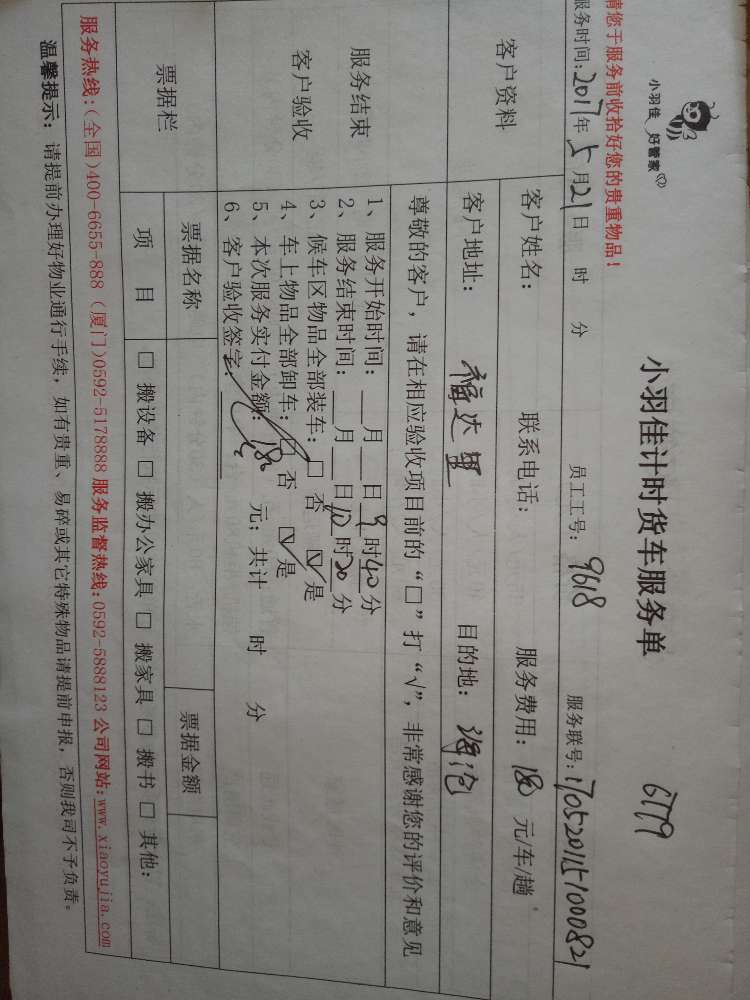 小羽佳 好管家
小羽佳计时货车服务单
6779
请您于服务前收拾好您的贵重物品!
服务时间:2017年5月21日 时 分 员工工号:9618 服务联号:1705201151000821
客户资料
客户姓名: 联系电话: 服务费用:180 元/车/趟
客户地址: 福达里 目的地:海沧
服务结束
客户验收
尊敬的客户,请在相应验收项目前的“□”打“√”,非常感谢您的评价和意见
1、服务开始时间:__月__日9时40分
2、服务结束时间:__月__日10时20分
3、候车区物品全部装车:□ 否 ☑ 是
4、车上物品全部卸车:□ 否 ☑ 是
5、本次服务实付金额:180 元;共计 时 分
6、客户验收签字:
票据栏
票据名称 票据金额
项 目 □ 搬设备 □ 搬办公家具 □ 搬家具 □ 搬书 □ 其他:
服务热线:(全国)400-6655-888 (厦门)0592-5178888 服务监督热线:0592-5888123 公司网站:www.xiaoyujia.com
温馨提示:请提前办理好物业通行手续,如有贵重、易碎或其它特殊物品请提前申报,否则我司不予负责。